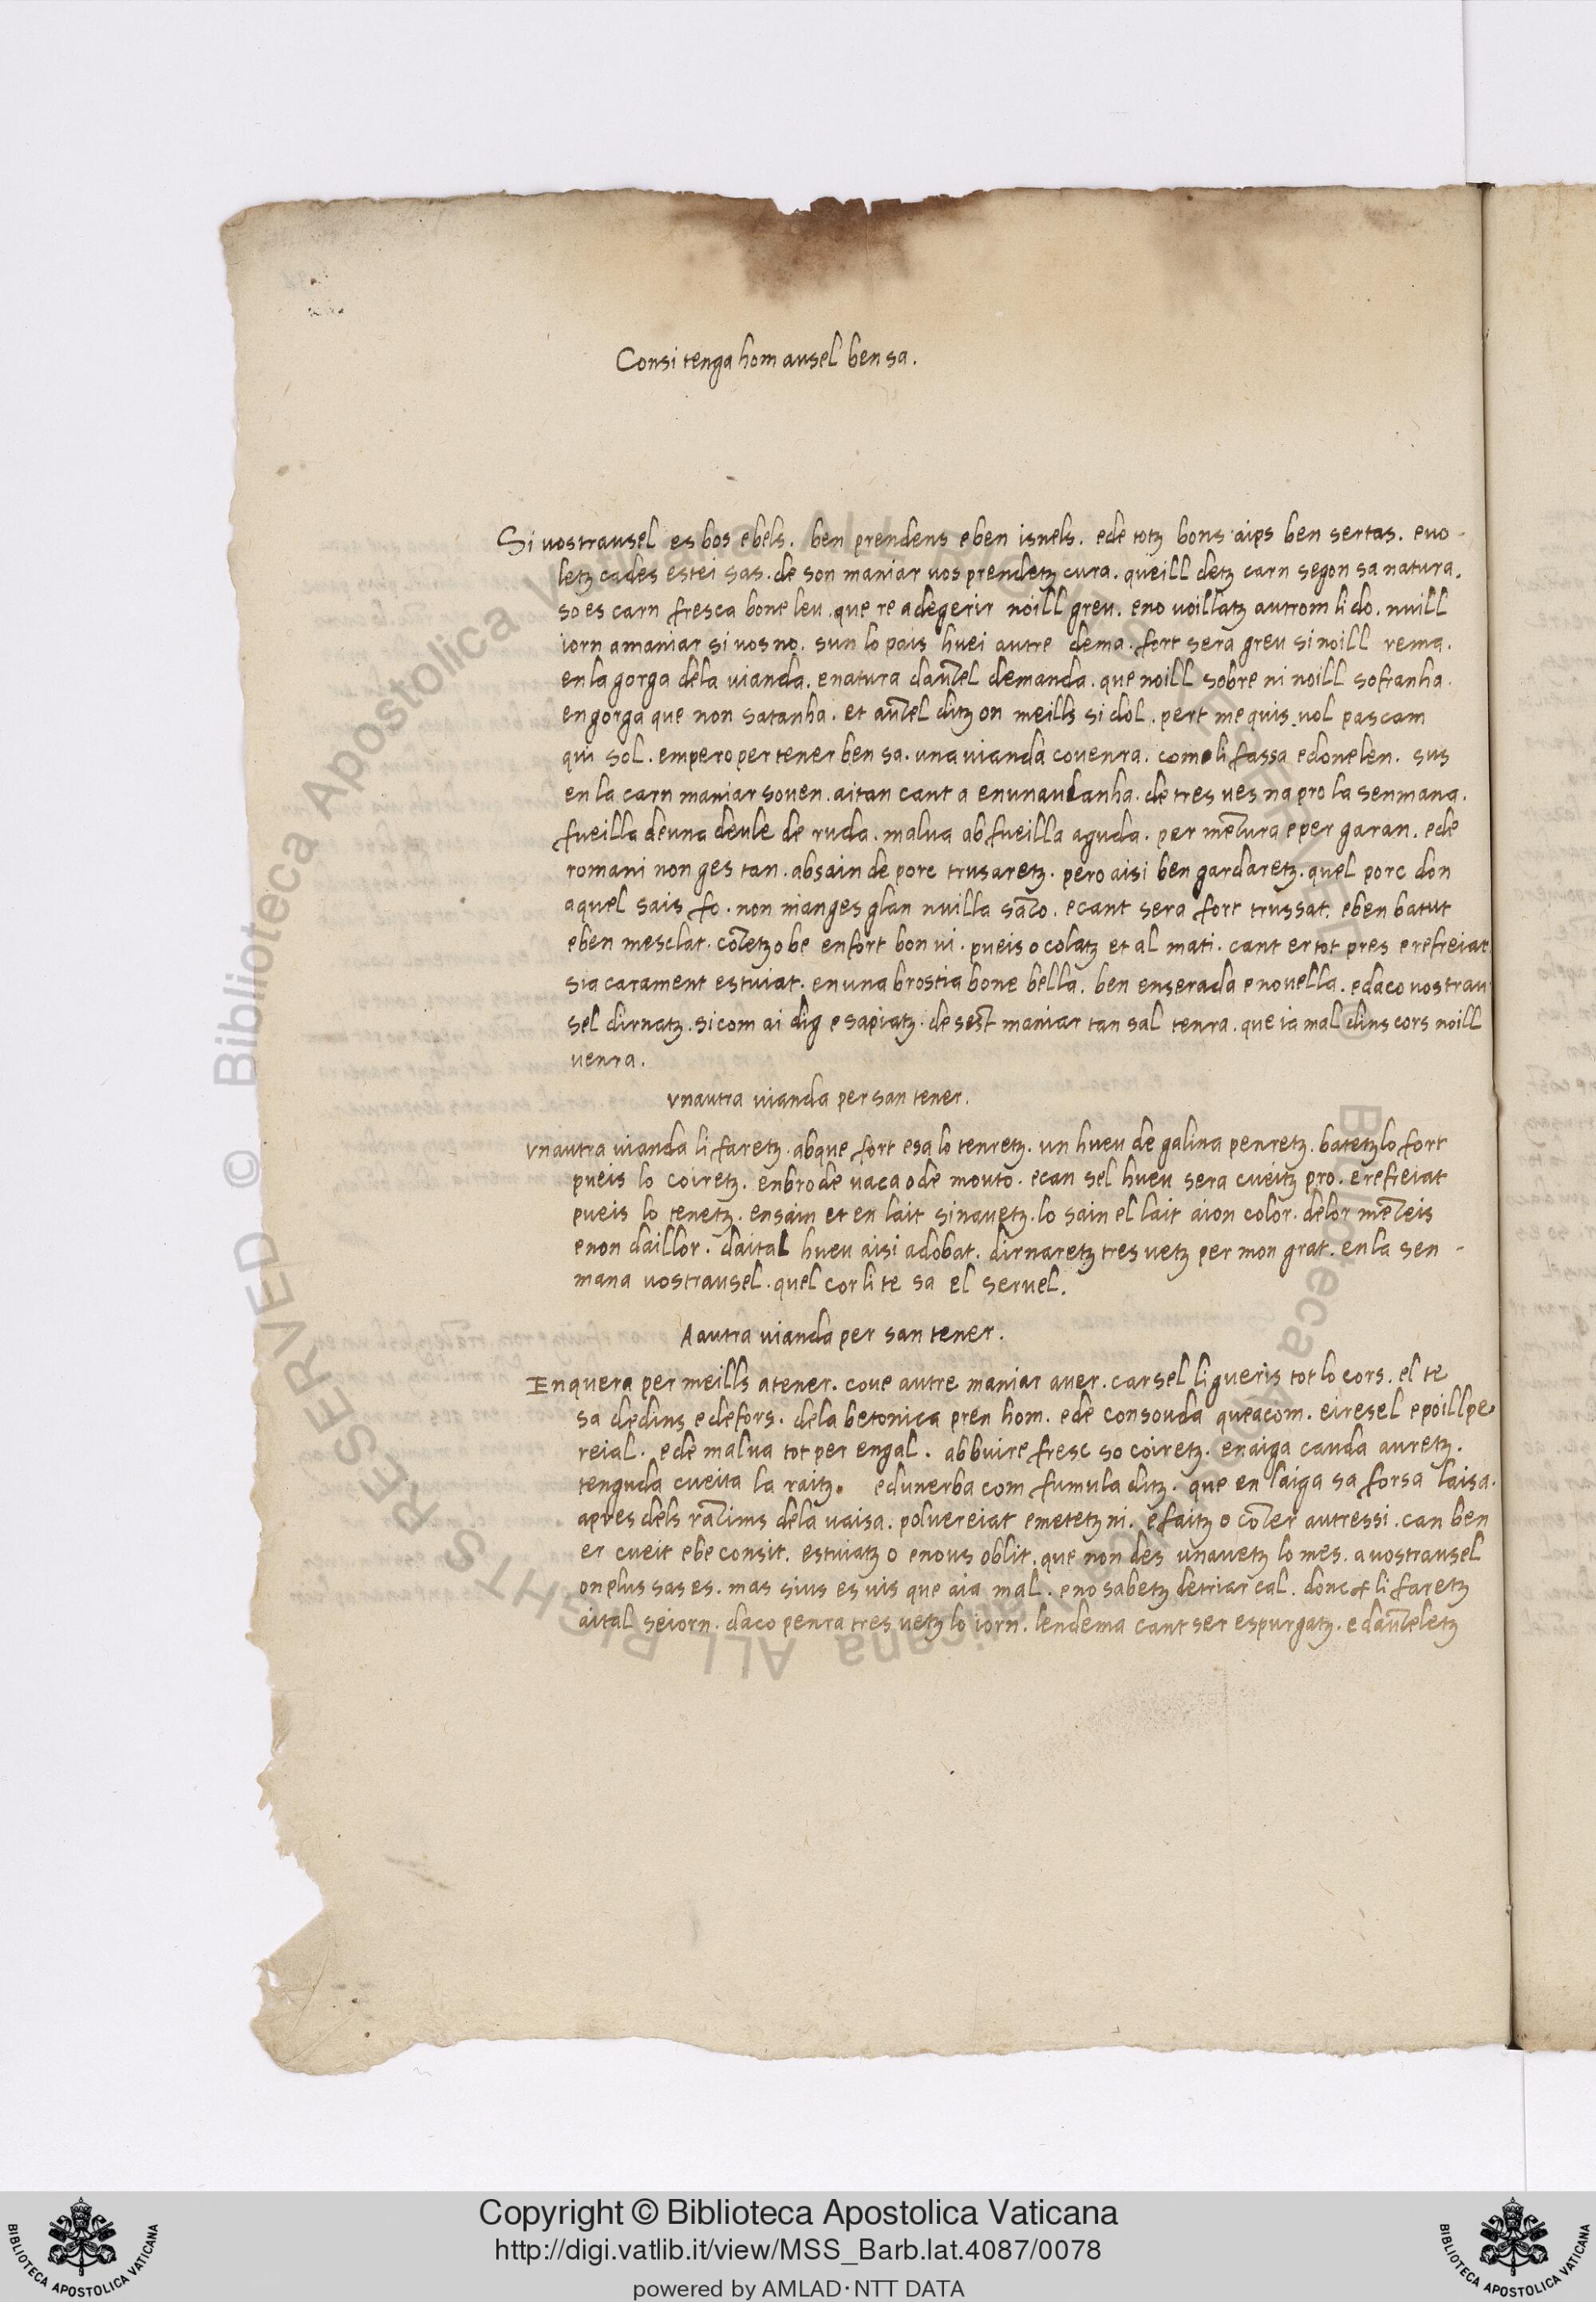 Consi tenga hom ausel ben sa.
Si uostrausel es bos ebels. ben prendens eben isnels. ede totz bons aips ben sertas. euo
letz cades estei sas. de son maniar uos prendetz cura. queill detz carn segon sa natura.
so es carn fresca bone leu. que re adegerir noill greu. eno uoillatz autrom li do. nuill
iorn amaniar si uos no. sun lo pais huei autre dema. fort sera greu si noill rema.
enla gorga dela uianda. enatura dauzel demanda. que noill sobre ni noill sofranha.
engorga que non satanha. et auzel ditz on meills si dol. pert me quis uol pascam
qui sol. empero per tener ben sa. una uianda couenra. com li fassa edonelen. sus
en la carn maniar souen. aitan cant a enunaulanha. de tres ues na pro la senmana.
fueilla deuna deule de ruda. malua ab fueilla aguda. per mezura eper garan. ede
romani non ges tan. absain de porc trusaretz. pero aisi ben gardaretz. quel porc don
aquel sais fo. non manges glan nuilla sazo. ecant sera fort trussat. eben batut
eben mesclat. cozetzo be enfort bon ui. pueis o colatz et al mati. cant er tot pres erefreiat
sia carament estuiat. enuna brostia bone bella. ben enserada enouella. edaco uostrau
sel dirnatz. sicom ai dig esapiatz. de sest maniar tan sal tenra. que ia mal dins cors noill
uenra.
vnautra uianda per san tener.
vnautra uianda li faretz. abque fort esa lo tenretz. un hueu de galina penretz. batetzlo fort
pueis lo coiretz. enbro de uaca o de mouto. ecan sel hueu sera cueitz pro. erefreiat
pueis lo tenetz. ensain et en lait sinauetz. lo sain el lait aion color. delor mezeis
enon daillor. daital hueu aisi adobat. dirnaretz tres uetz per mon grat. enla sen -
mana uostrausel. quel cor li te sa el seruel.
Aautra uianda per san tener.
Enquera per meills atener. coue autre maniar auer. carsel li gueris tot lo cors. el te
sa dedins edefors. dela betonica pren hom. ede consouda queacom. eiresel epoillpe
reial. ede malua tot per engal. abbuire fresc so coiretz. enaiga cauda auretz.
tenguda cueita la raitz. edunerba com fumula ditz. que en laiga sa forsa laisa.
apres dels razims dela uaisa. poluereiat emetetz ni. efaitz o cozer autressi. can ben
er cueit ebe consit. estuiatz o enous oblit. que non des unauetz lo mes. auostrausel
onplus sas es. mas sius es uis que aia mal. eno sabetz detriar cal. doncx li faretz
aital seiorn. daco penra tres uetz lo iorn. lendema cant ser espurgatz. edauzeletz
Copyright © Biblioteca Apostolica Vaticana
http://digi.vatlib.it/view/MSS_Barb.lat.4087/0078
powered by AMLAD·NTT DATA